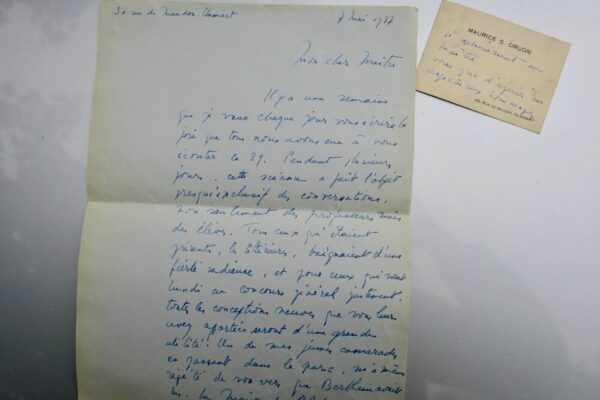 30 rue de Meudon. Clamart
7 Mai 1937
Mon cher Maître
Il y a une semaine
que je veux chaque jour vous écrire la
joie que tous nous avons eue à vous
écouter le 29. Pendant plusieurs
jours, cette séance a fait l'objet
presqu'exclusif des conversations,
non seulement des professeurs mais
des élèves. Tous ceux qui étaient
présents, les littéraires, baignaient d'une
fierté radieuse, et pour ceux qui vont
lundi au concours général justement,
toutes les conceptions neuves que vous leur
avez apportées seront d'une grande
utilité. Un de mes jeunes camarades
en passant dans le parc, m'a même
répété de vos vers que
MAURICE S. DRUON
maître
vous prie d'agréer ses
respectueux hommages
30, RUE DE MEUDON, CLAMART